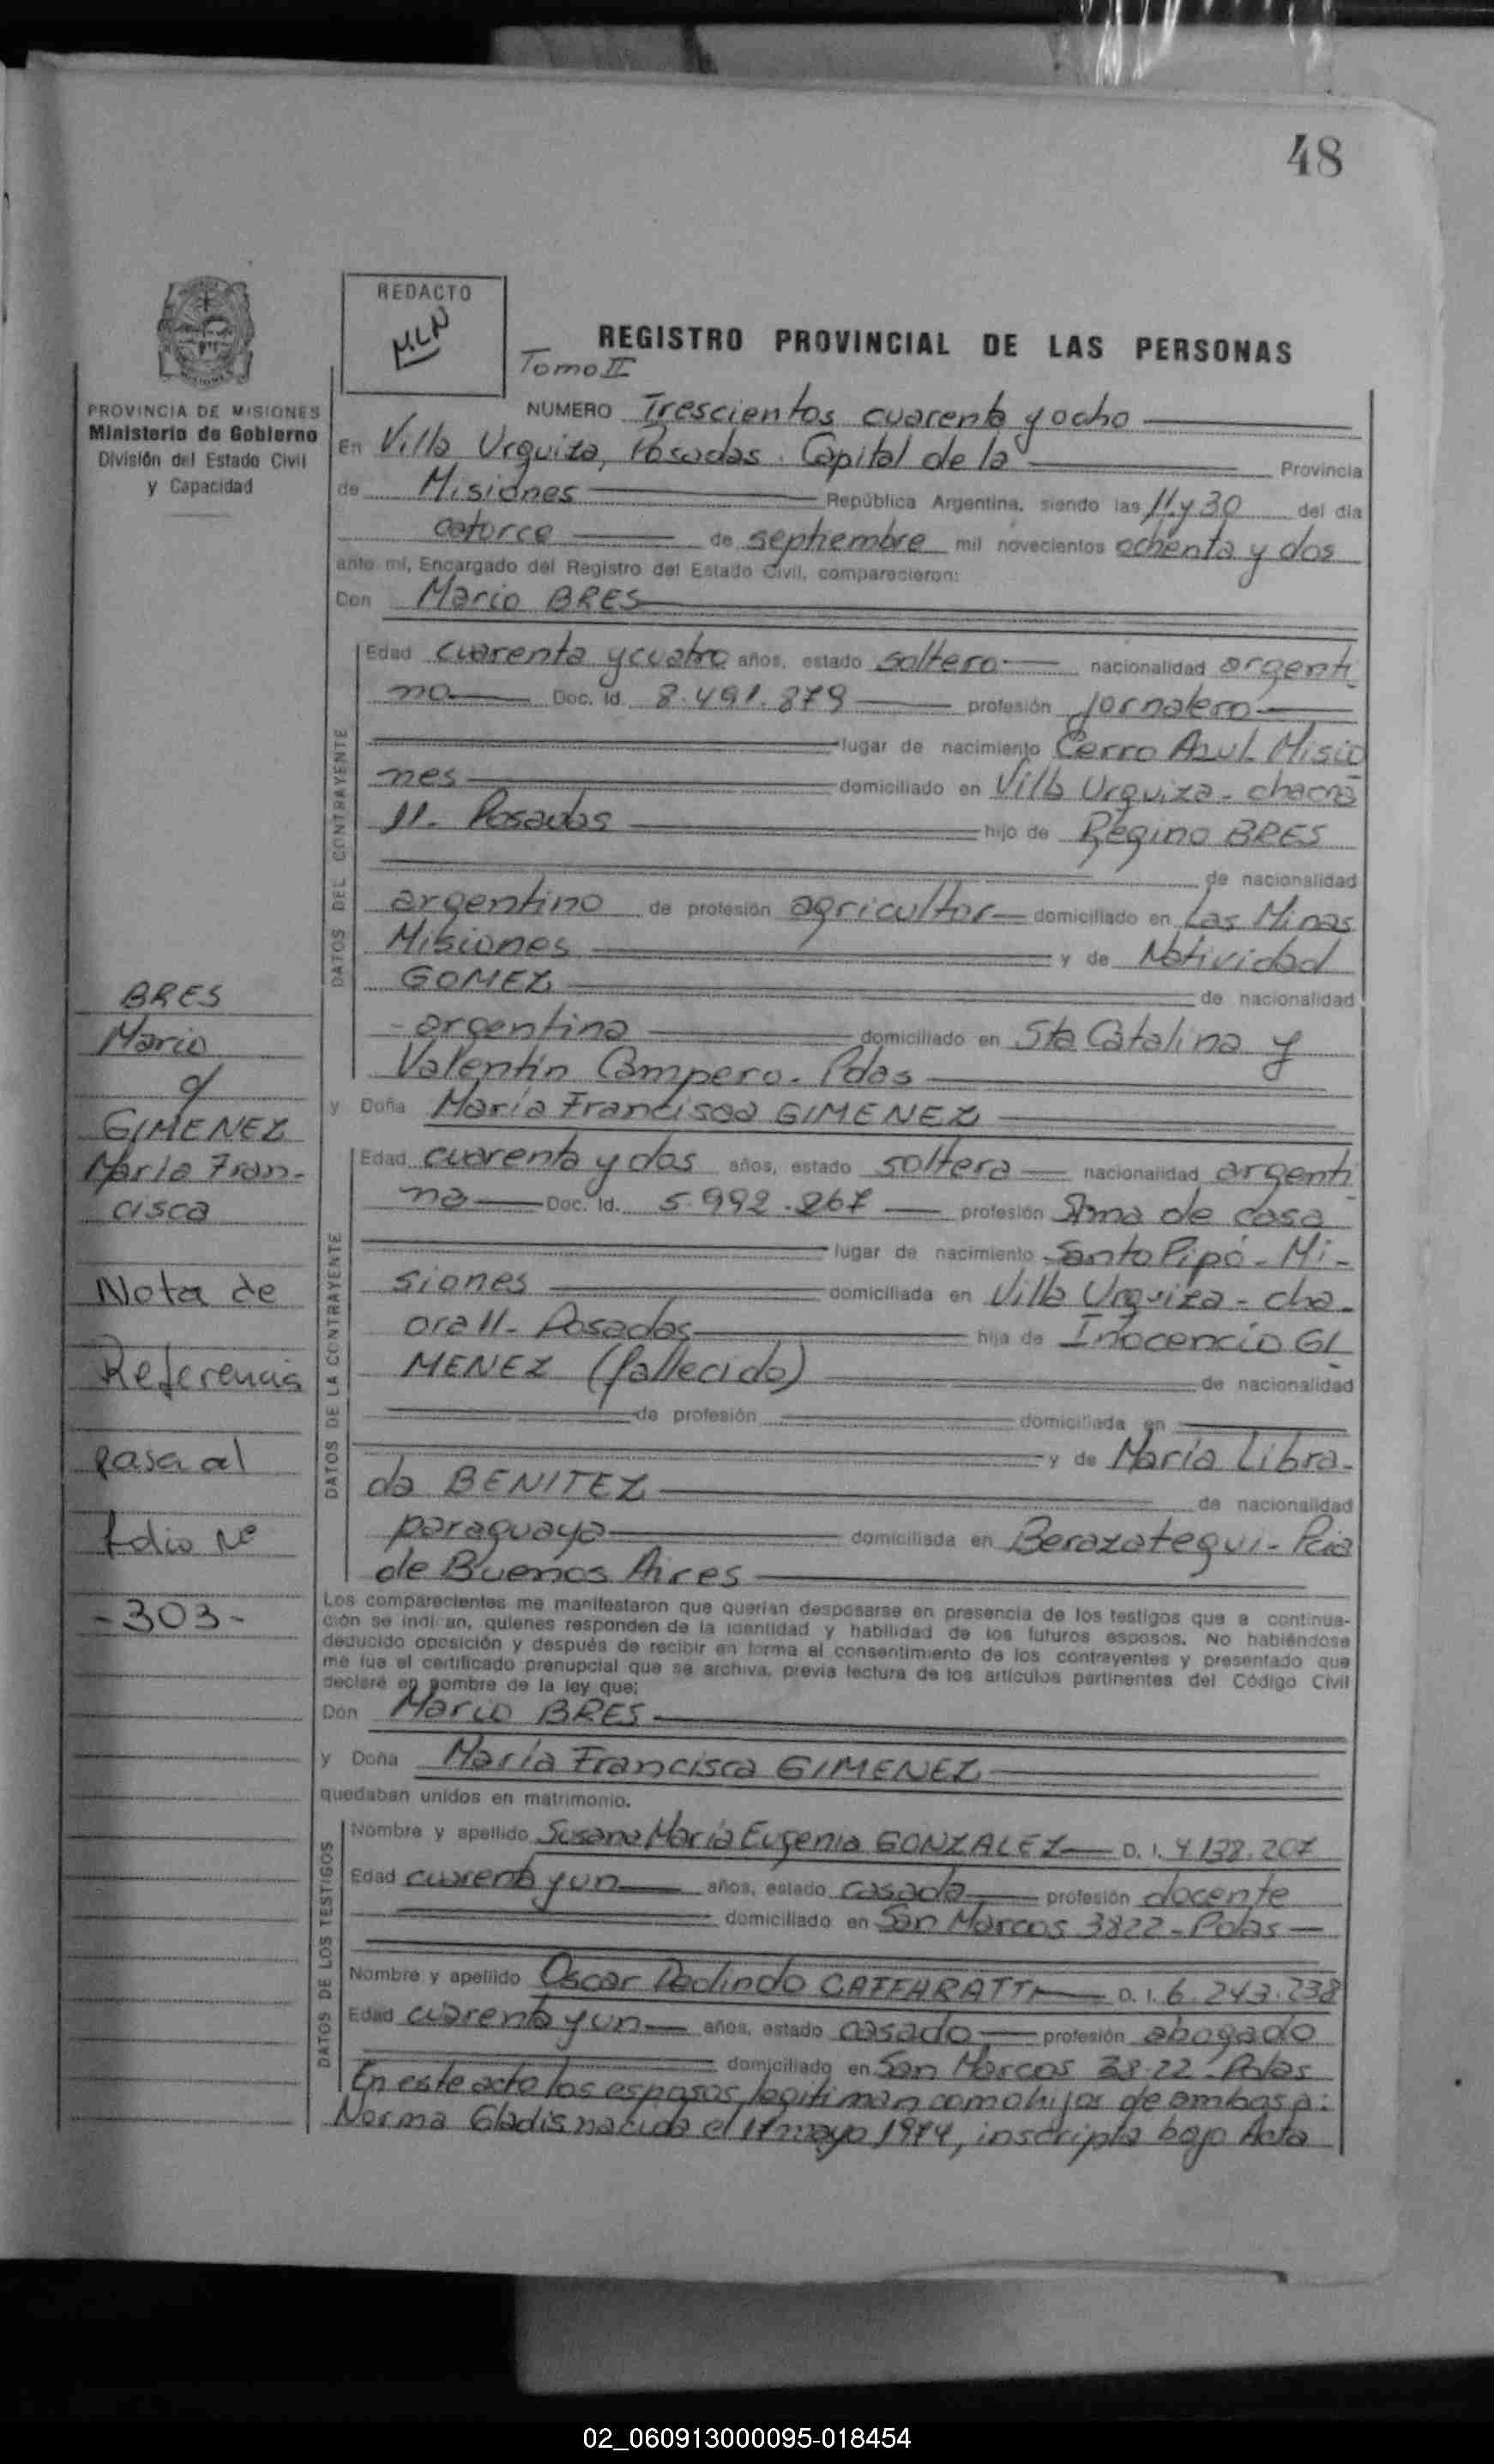 48
REDACTO
MLN
REGISTRO PROVINCIAL DE LAS PERSONAS
Tomo II
PROVINCIA DE MISIONES
Ministerio de Gobierno
División del Estado Civil
y Capacidad
NUMERO Trescientos cuarenta y ocho
En Villa Urquiza, Posadas. Capital de la Provincia
de Misiones República Argentina, siendo las 11 y 30 del día
catorce de septiembre mil novecientos ochenta y dos
ante mí, Encargado del Registro del Estado Civil, comparecieron:
Don Mario BRES
DATOS DEL CONTRAYENTE
Edad cuarenta y cuatro años, estado soltero nacionalidad argenti
no Doc. Id. 8.491.879 profesión jornalero
lugar de nacimiento Cerro Azul Misio
nes domiciliado en Villa Urquiza - chacra
11- Posadas hijo de Regino BRES
de nacionalidad
argentino de profesión agricultor domiciliado en Las Minas
Misiones y de Natividad
GOMEZ de nacionalidad
argentina domiciliado en Sta Catalina y
Valentín Campero. Pdas
y Doña María Francisca GIMENEZ
DATOS DE LA CONTRAYENTE
Edad cuarenta y dos años, estado soltera nacionalidad argenti
na Doc. Id. 5.992.267 profesión Ama de casa
lugar de nacimiento Santo Pipó - Mi-
siones domiciliada en Villa Urquiza - cha-
cra 11- Posadas hija de Inocencio GI
MENEZ (fallecido) de nacionalidad
de profesión domiciliada en
y de María Libra-
da BENITEZ de nacionalidad
paraguaya domiciliada en Berazategui - Pcia
de Buenos Aires
Los comparecientes me manifestaron que querían desposarse en presencia de los testigos que a continua-
ción se indican, quienes responden de la identidad y habilidad de los futuros esposos. No habiéndose
deducido oposición y después de recibir en forma el consentimiento de los contrayentes y presentado que
me fue el certificado prenupcial que se archiva, previa lectura de los artículos pertinentes del Código Civil
declaré en nombre de la ley que:
Don Mario BRES
y Doña María Francisca GIMENEZ
quedaban unidos en matrimonio.
DATOS DE LOS TESTIGOS
Nombre y apellido Susana María Eugenia GONZALEZ D. I. 4.138.207
Edad cuarenta y un años, estado casada profesión docente
domiciliado en San Marcos 3822 - Pdas
Nombre y apellido Oscar Deolindo CAFFARATTI D. I. 6.243.238
Edad cuarenta y un años, estado casado profesión abogado
domiciliado en San Marcos 38-22 Pdas
En este acto los esposos legitiman como hijos de ambos a:
Norma Gladis nacida el 17 mayo 1974, inscripta bajo Acta
BRES
Mario
c/
GIMENEZ
María Fran-
cisca
Nota de
Referencia
pasa al
folio Nº
-303-
02_060913000095-018454